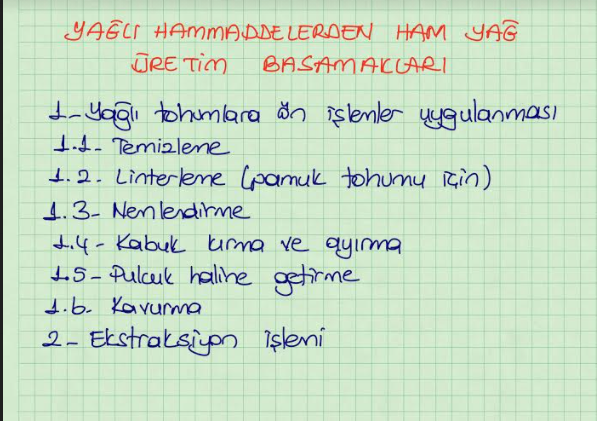 YAĞLI HAMMADDELERDEN HAM YAĞ
ÜRETİM BASAMAKLARI
1- Yağlı tohumlara ön işlemler uygulanması
1.1- Temizleme
1.2- Linterleme (pamuk tohumu için)
1.3- Nemlendirme
1.4- Kabuk kırma ve ayırma
1.5- Pulcuk haline getirme
1.6- Kavurma
2- Ekstraksiyon işlemi